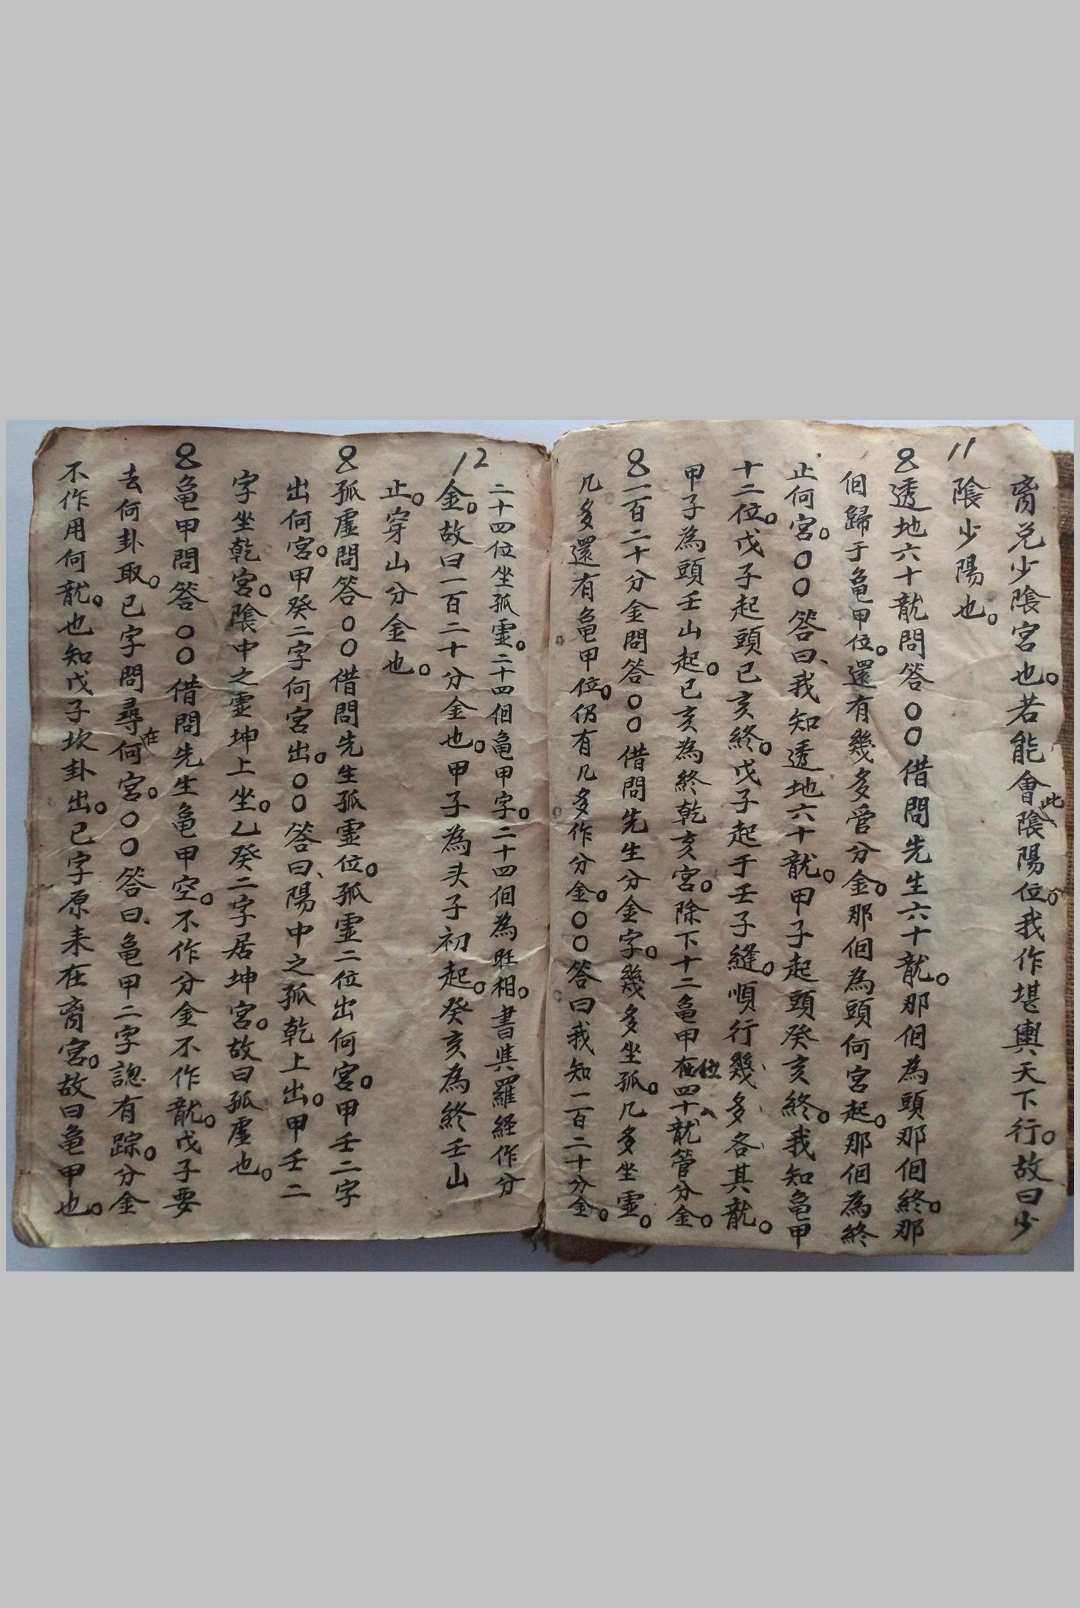 11
離兌少陰宮也。若能會此陰陽位。我作堪輿天下行。故曰少
陰少陽也。
透地六十龍問答○○借問先生六十龍。那個為頭那個終。那
個歸于龜甲位。還有幾多管分金。那個為頭何宮起。那個為終
止何宮。○○答曰、我知透地六十龍。甲子起頭癸亥終。我知龜甲
十二位。戊子起頭己亥終。戊子起于壬子縫。順行幾多各其龍。
甲子為頭壬山起。己亥為終乾亥宮。除下十二龜甲位。四十八龍管分金。
一百二十分金問答○○借問先生分金字。幾多坐孤。几多坐虛。
几多還有龜甲位。仍有几多作分金。○○答曰我知一百二十分金。
12
二十四位坐孤虛。二十四個龜甲字。二十四個為旺相。書其羅經作分
金。故曰一百二十分金也。甲子為头子初起。癸亥為終壬山
止。穿山分金也。
孤虛問答○○借問先生孤虛位。孤虛二位出何宮。甲壬二字
出何宮。甲癸二字何宮出。○○答曰、陽中之孤乾上出。甲壬二
字坐乾宮。陰中之虛坤上坐。乙癸二字居坤宮。故曰孤虛也。
龜甲問答○○借問先生龜甲空。不作分金不作龍。戊子要
去何卦取。己字問尋在何宮。○○答曰、龜甲二字認有踪。分金
不作用何龍。也知戊子坎卦出。己字原来在离宮。故曰龜甲也。